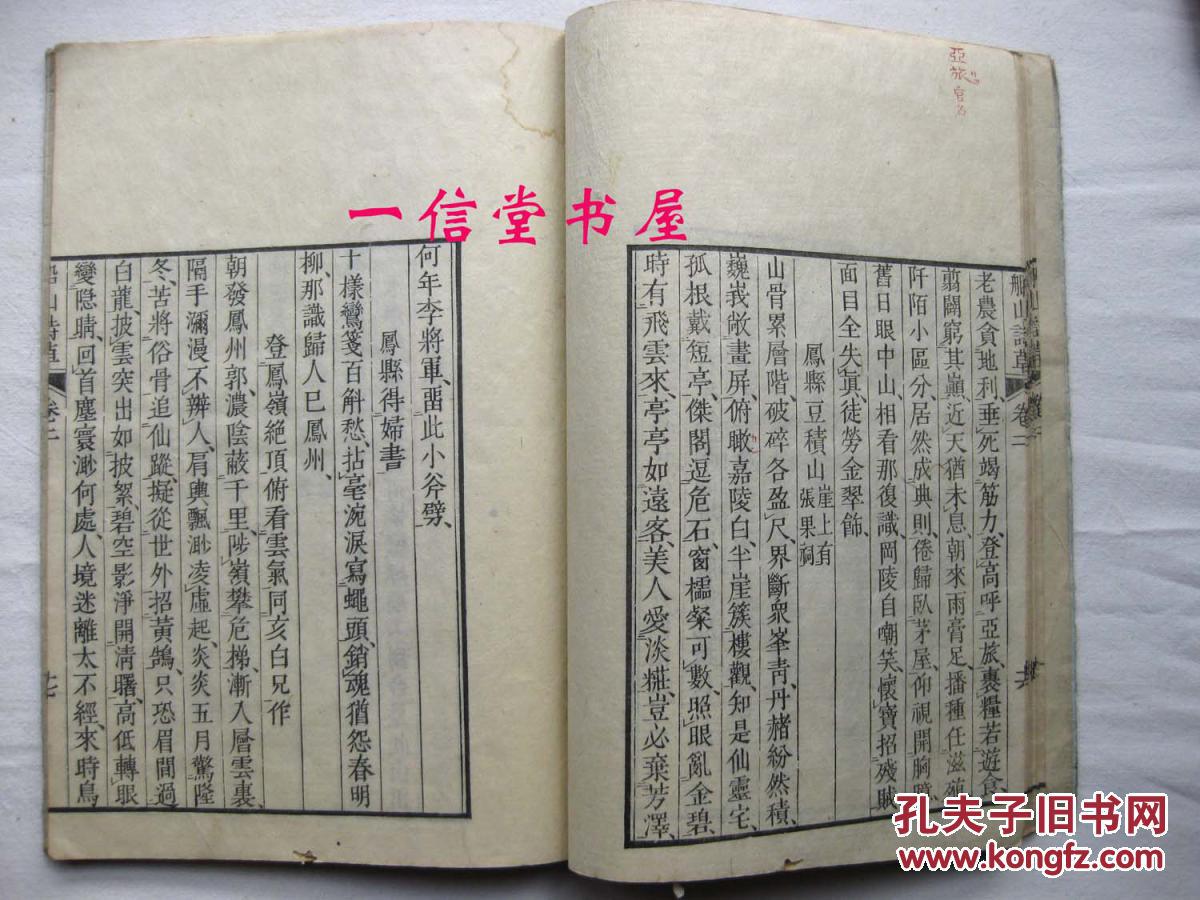 亞旅官名
一信堂书屋
船山詩草 卷二
老農貪地利、垂死竭筋力、登高呼亞旅、裹糧若遊食、
翦闢窮其巔、近天猶未息、朝來雨膏足、播種任滋殖、
阡陌小區分、居然成典則、倦歸臥茅屋、仰視開胸臆、
舊日眼中山、相看那復識、岡陵自嘲笑、懷寶招殘賊、
面目全失真、徒勞金翠飾、
鳳縣豆積山 崖上有張果祠
山骨累層階、破碎各盈尺、界斷衆峯靑、丹赭紛然積、
巍峩敞畫屏、俯瞰嘉陵白、半崖簇樓觀、知是仙靈宅、
孤根戴短亭、傑閣逗危石、窗櫺粲可數、照眼亂金碧、
時有飛雲來、亭亭如遠客、美人愛淡糚、豈必棄芳澤、
何年李將軍、畱此小斧劈、
鳳縣得婦書
十樣鸞箋百斛愁、拈毫涴淚寫蠅頭、銷魂猶怨春明
柳、那識歸人已鳳州、
登鳳嶺絕頂俯看雲氣同亥白兄作
朝發鳳州郭、濃陰蔽千里、陟嶺攀危梯、漸入層雲裏、
隔手瀰漫不辨人、肩輿飄渺凌虛起、炎炎五月驚隆
冬、苦將俗骨追仙蹤、擬從世外招黃鵠、只恐眉間過
白龍、披雲突出如披絮、碧空影淨開淸曙、高低轉眼
變隱晴、回首塵寰渺何處、人境迷離太不經、來時鳥
船山詩草 卷二 十七
孔夫子旧书网
www.kongfz.com